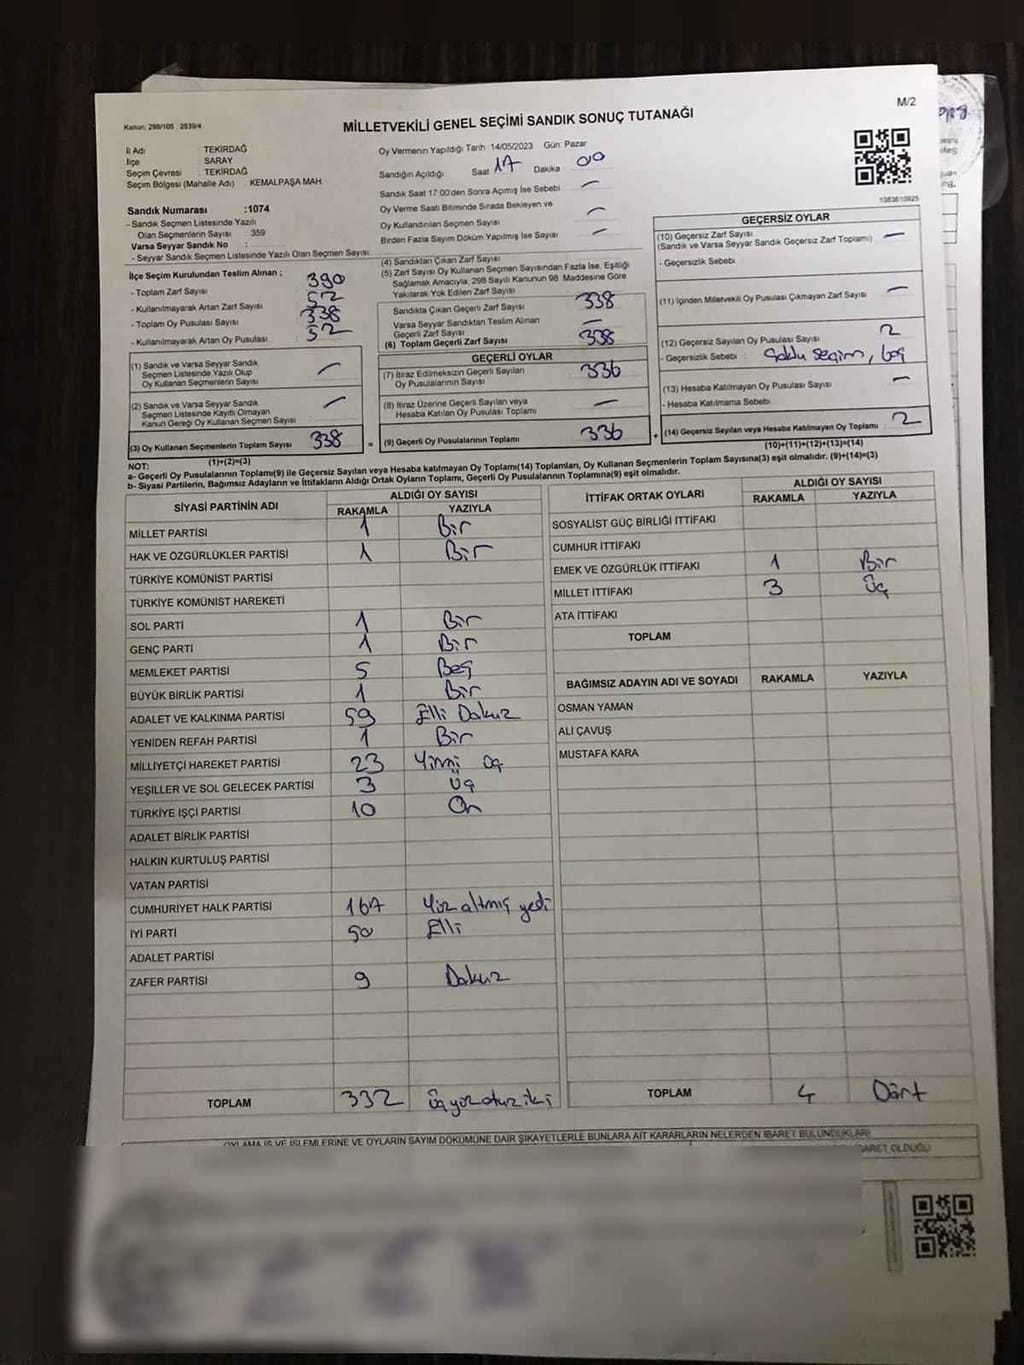 M/2
Kanun: 298/105 , 2839/4
MİLLETVEKİLİ GENEL SEÇİMİ SANDIK SONUÇ TUTANAĞI
İl Adı : TEKİRDAĞ
İlçe : SARAY
Seçim Çevresi : TEKİRDAĞ
Seçim Bölgesi (Mahalle Adı) : KEMALPAŞA MAH.
Sandık Numarası :1074
- Sandık Seçmen Listesinde Yazılı
Olan Seçmenlerin Sayısı : 359
Varsa Seyyar Sandık No :
- Seyyar Sandık Seçmen Listesinde Yazılı Olan Seçmen Sayısı
Oy Vermenin Yapıldığı Tarih 14/05/2023 Gün: Pazar
Sandığın Açıldığı Saat 17 Dakika 00
Sandık Saat 17:00'den Sonra Açılmış İse Sebebi —
Oy Verme Saati Bitiminde Sırada Bekleyen ve
Oy Kullandırılan Seçmen Sayısı —
Birden Fazla Sayım Döküm Yapılmış İse Sayısı —
1083610925
İlçe Seçim Kurulundan Teslim Alınan ;
- Toplam Zarf Sayısı 390
- Kullanılmayarak Artan Zarf Sayısı 52
- Toplam Oy Pusulası Sayısı 338
- Kullanılmayarak Artan Oy Pusulası 52
(1) Sandık ve Varsa Seyyar Sandık
Seçmen Listesinde Yazılı Olup
Oy Kullanan Seçmenlerin Sayısı —
(2) Sandık ve Varsa Seyyar Sandık
Seçmen Listesinde Kayıtlı Olmayan
Kanun Gereği Oy Kullanan Seçmen Sayısı —
(3) Oy Kullanan Seçmenlerin Toplam Sayısı 338
(1)+(2)=(3)
(4) Sandıktan Çıkan Zarf Sayısı
(5) Zarf Sayısı Oy Kullanan Seçmen Sayısından Fazla İse, Eşitliği
Sağlamak Amacıyla, 298 Sayılı Kanunun 98. Maddesine Göre
Yakılarak Yok Edilen Zarf Sayısı
Sandıkta Çıkan Geçerli Zarf Sayısı 338
Varsa Seyyar Sandıktan Teslim Alınan
Geçerli Zarf Sayısı —
(6) Toplam Geçerli Zarf Sayısı 338
GEÇERLİ OYLAR
(7) İtiraz Edilmeksizin Geçerli Sayılan
Oy Pusulalarının Sayısı 336
(8) İtiraz Üzerine Geçerli Sayılan veya
Hesaba Katılan Oy Pusulası Toplamı —
= (9) Geçerli Oy Pusulalarının Toplamı 336
GEÇERSİZ OYLAR
(10) Geçersiz Zarf Sayısı —
(Sandık ve Varsa Seyyar Sandık Geçersiz Zarf Toplamı)
- Geçersizlik Sebebi
(11) İçinden Milletvekili Oy Pusulası Çıkmayan Zarf Sayısı —
(12) Geçersiz Sayılan Oy Pusulası Sayısı 2
- Geçersizlik Sebebi : Çoklu seçim, boş
(13) Hesaba Katılmayan Oy Pusulası Sayısı —
- Hesaba Katılmama Sebebi
+ (14) Geçersiz Sayılan veya Hesaba Katılmayan Oy Toplamı 2
(10)+(11)+(12)+(13)=(14)
NOT:
a- Geçerli Oy Pusulalarının Toplamı(9) ile Geçersiz Sayılan veya Hesaba katılmayan Oy Toplamı(14) Toplamları, Oy Kullanan Seçmenlerin Toplam Sayısına(3) eşit olmalıdır. (9)+(14)=(3)
b- Siyasi Partilerin, Bağımsız Adayların ve İttifakların Aldığı Ortak Oyların Toplamı, Geçerli Oy Pusulalarının Toplamına(9) eşit olmalıdır.
SİYASİ PARTİNİN ADI ALDIĞI OY SAYISI
RAKAMLA YAZIYLA
MİLLET PARTİSİ 1 Bir
HAK VE ÖZGÜRLÜKLER PARTİSİ 1 Bir
TÜRKİYE KOMÜNİST PARTİSİ
TÜRKİYE KOMÜNİST HAREKETİ
SOL PARTİ 1 Bir
GENÇ PARTİ 1 Bir
MEMLEKET PARTİSİ 5 Beş
BÜYÜK BİRLİK PARTİSİ 1 Bir
ADALET VE KALKINMA PARTİSİ 59 Elli Dokuz
YENİDEN REFAH PARTİSİ 1 Bir
MİLLİYETÇİ HAREKET PARTİSİ 23 Yirmi üç
YEŞİLLER VE SOL GELECEK PARTİSİ 3 Üç
TÜRKİYE İŞÇİ PARTİSİ 10 On
ADALET BİRLİK PARTİSİ
HALKIN KURTULUŞ PARTİSİ
VATAN PARTİSİ
CUMHURİYET HALK PARTİSİ 167 Yüz altmış yedi
İYİ PARTİ 50 Elli
ADALET PARTİSİ
ZAFER PARTİSİ 9 Dokuz
TOPLAM 332 üçyüzotuziki
İTTİFAK ORTAK OYLARI ALDIĞI OY SAYISI
RAKAMLA YAZIYLA
SOSYALİST GÜÇ BİRLİĞİ İTTİFAKI
CUMHUR İTTİFAKI
EMEK VE ÖZGÜRLÜK İTTİFAKI 1 Bir
MİLLET İTTİFAKI 3 Üç
ATA İTTİFAKI
TOPLAM
BAĞIMSIZ ADAYIN ADI VE SOYADI RAKAMLA YAZIYLA
OSMAN YAMAN
ALİ ÇAVUŞ
MUSTAFA KARA
TOPLAM 4 Dört
OYLAMA İŞ VE İŞLEMLERİNE VE OYLARIN SAYIM DÖKÜMÜNE DAİR ŞİKAYETLERLE BUNLARA AİT KARARLARIN NELERDEN İBARET BULUNDUKLARI
OLDUĞU